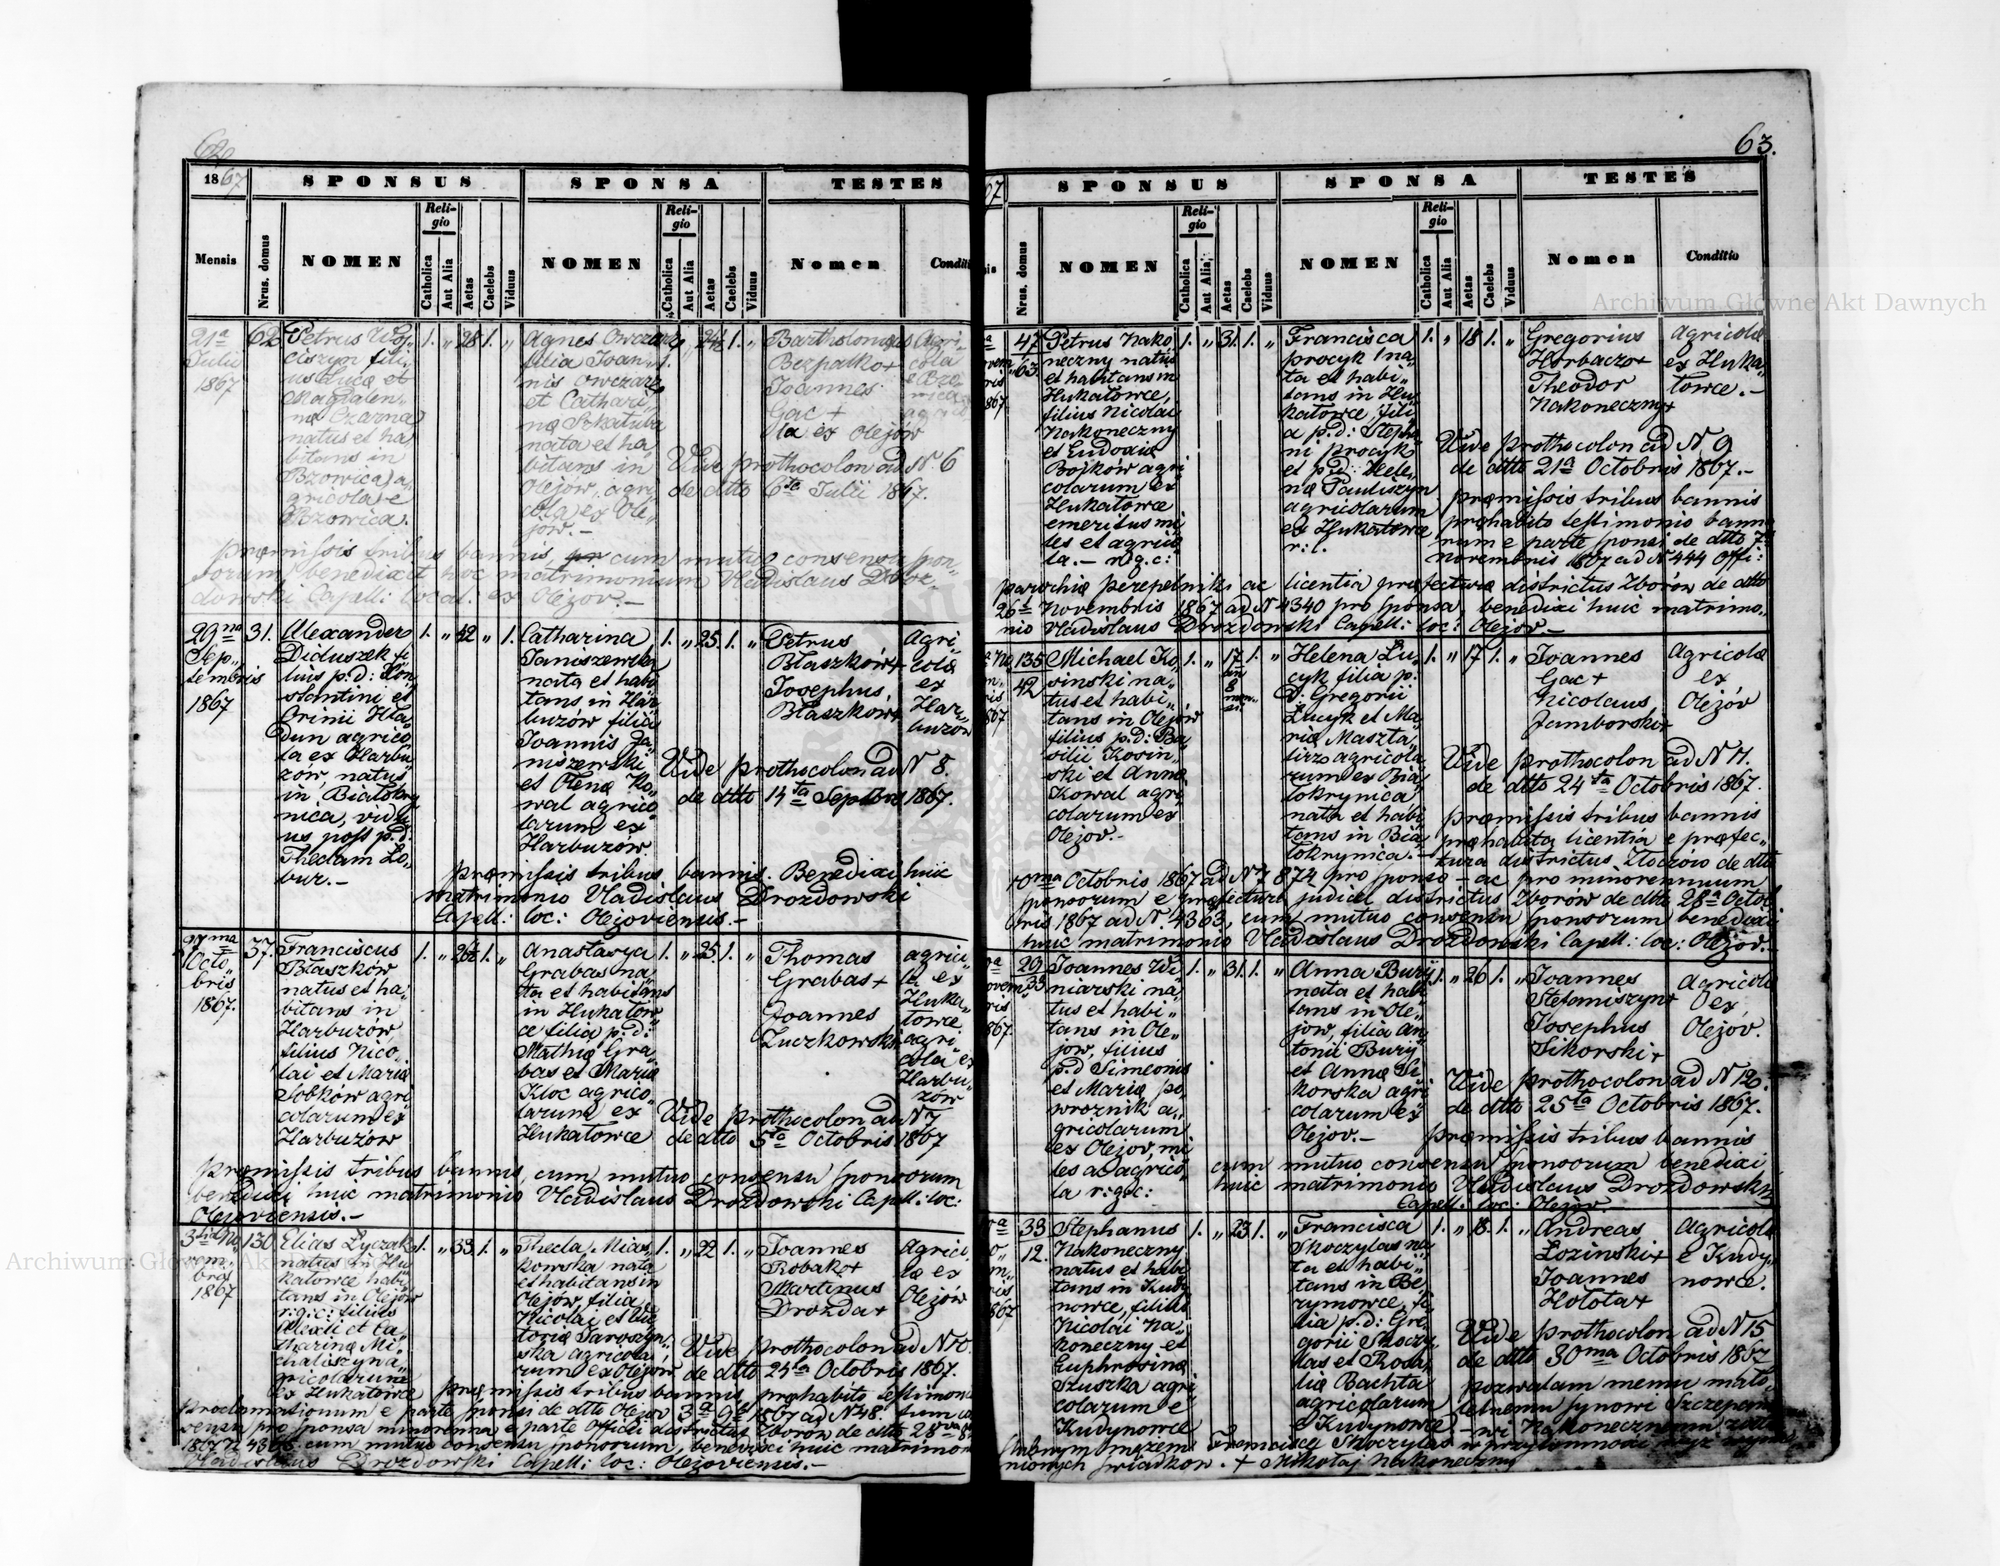 62
1867
SPONSUS
SPONSA
TESTES
Mensis
Nrus. domus
NOMEN
Religio
Catholica
Aut Alia
Aetas
Caelebs
Viduus
NOMEN
Religio
Catholica
Aut Alia
Aetas
Caelebs
Viduus
Nomen
Conditi
21a
Julii
1867
62
Petrus
ciszyn fili„
us Lucæ et
Magdalen„
næ Czarna
natus et ha„
bitans in
Bzowica, a„
gricola e
Bzowica.
1. „ 28 1. „
Agnes Owczarz
filia Joan„
nis Owczarz
et Cathari„
næ Szkatuba
nata et ha„
bitans in
Olejów, agri„
cola ex Ole„
jów.–
1. „ 24 1. „
Bartholomæus
Bezpalko+
Joannes
Gac +
la ex Olejów
Agri„
cola
e Bzo„
wica
Vide prothocolon ad N. 6
de dtto 6ta Julii 1867.
Præmissis tribus bannis, cum mutuo consensu spon„
sorum, benedixit hoc matrimonium Vladislaus Droz„
dowski Capell: local: ex Olejov.–
29na
Sep„
tembris
1867
31.
Alexander
Diduszek fi„
lius p:d: Con„
stantini et
Irinii Hla„
dun agrico„
la ex Harbu„
zów, natus
in Białokry„
nica, vidu„
us post p:d:
Theclam Lo„
bur.–
1. „ 42 „ 1.
Catharina
Janiszewska
nata et habi„
tans in Har„
buzów filia
Joannis Ja„
niszewski
et Olenæ Ko„
wal agrico„
larum ex
Harbuzów
1. „ 25. 1. „
Petrus
Błaszków+
Josephus
Błaszków+
Agri„
colæ
ex
Har„
buzów
Vide prothocolon ad N 8.
de dtto 14ta Septbris 1867.
præmissis tribus bannis. Benedixi huic
matrimonio Vladislaus Drozdowski
Capell: loc: Olejoviensis.–
Octo„
bris
1867.
37.
Franciscus
Błaszków
natus et ha„
bitans in
Harbuzów
filius Nico„
lai et Mariæ
Sobków agri„
colarum ex
Harbuzów
1. „ 26 1. „
Anastasya
Grabas na„
ta et habitans
in Hukałow„
ce filia p:d:
Mathiæ Gra„
bas et Mariæ
Kloc agrico„
larum ex
Hukałowce
1. „ 25. 1. „
Thomas
Grabas+
Joannes
Zuczkowski+
agrico„
la ex
Huka„
łowce.
agri„
cola ex
Harbu„
zów
Vide prothocolon ad N 7
de dtto 5ta Octobris 1867
præmissis tribus bannis, cum mutuo consensu sponsorum
benedixi huic matrimonio Vladislaus Drozdowski Capell: loc:
Olejoviensis.–
3tia No„
vem„
bris
1867
130
Elias Łyczak
natus in Hu„
katowce habi„
tans in Olejów
r:g:c: filius
Alexii et Ca„
tharinæ Mi„
chaliszyn a„
gricolarum
ex Hukałowce
1. „ 33. 1. „
Thecla Mias„
kowska nata
et habitans in
Olejów, filia
Nicolai et Vic„
toriæ Jaroszyn„
ska agricola„
rum ex Olejów
1. „ 22 1. „
Joannes
Robak+
Martinus
Drozda+
Agrico„
læ ex
Olejów
Vide prothocolon ad N 10.
de dtto 24ta Octobris 1867.
præmissis tribus bannis, præhabito testimonio
proclamationum e parte sponsi de dtto Olejov 3a 9b 1867 ad N 48.
pro sponsa minorenna e parte Officii districtus Zborów de dtto 28va
cum mutuo consensu sponsorum, benedixi huic matrimon
Vladislaus Drozdowski Capell: loc: Olejoviensis.–
63.
67
SPONSUS
SPONSA
TESTES
Nrus. domus
NOMEN
Religio
Catholica
Aut Alia
Aetas
Caelebs
Viduus
NOMEN
Religio
Catholica
Aut Alia
Aetas
Caelebs
Viduus
Nomen
Conditio
47
63.
Petrus Nako„
neczny natus
et habitans in
Hukałowce,
filius Nicolai
Nakoneczny
et Eudoxiæ
Bojków agri„
colarum ex
Hukałowce
emeritus mi„
les et agrico„
la.– r:g:c:
1. „ 31. 1. „
Francisca
Procyk na„
ta et habi„
tans in Hu„
katowce, fili„
a p:d: Stepha„
ni Procyk
et p:d: Hele„
næ Pauliszyn
agricolarum
ex Hukałowce
r:l.
1. „ 18 1. „
Gregorius
Horbacz+
Theodor
Nakoneczny+
Agricolæ
ex Huka„
łowce.–
Vide prothocolon ad N 9
de dtto 21a Octobris 1867.–
præmissis tribus bannis
præhabito testimonio banno„
rum e parte sponsi de dtto 7
novembris 1867 ad N 444 Offi:
parochiæ Perepelniki ac licentia præfecturæ districtus Zborów de dtto
26ta Novembris 1867 ad N 4340 pro sponsa, benedixi huic matrimo„
nio Vladislaus Drozdowski Capell: loc: Olejov.–
135
42
Michael Ko„
sinski na„
tus et habi„
tans in Olejów
filius p:d: Ba„
silii Kosin„
ski et Annæ
Kowal agri„
colarum ex
Olejov.–
1. „ 17 1. „
Helena Lu„
cyk filia p:
d: Gregorii
Lucyk et Ma„
riæ Maszta„
lirz agricola„
rum ex Bia„
łokrynica
nata et habi„
tans in Bia„
łokrynica.–
1. „ 17 1. „
Joannes
Gac+
Nicolaus
Jamborski+
Agricolæ
ex
Olejów
Vide prothocolon ad N 11.
de dtto 24ta Octobris 1867.
præmissis tribus bannis
præhabita licentia e præfec„
tura districtus Złoczów de dtto
Octobris 1867 ad N 7874 pro sponso – ac pro minorennium
sponsorum e præfectura judicial districtus Zborów de dtto 28a Octob„
bris 1867 ad N. 4363, cum mutuo consensu sponsorum benedixi
huic matrimonio Vladislaus Drozdowski Capell: loc: Olejov.–
29
33
Joannes Wi„
niarski na„
tus et habi„
tans in Ole„
jow, filius
p:d Simeonis
et Mariæ Po„
wroznik a„
gricolarum
ex Olejov, mi„
les ac agrico„
la r:g:c:
1. „ 31. 1. „
Anna Bury
nata et habi„
tans in Ole„
jow, filia An„
tonii Bury
et Annæ Si„
korska agri„
colarum ex
Olejov.–
1. „ 26 1. „
Joannes
Stefaniszyn+
Josephus
Sikorski+
Agricolæ
ex
Olejov.
Vide prothocolon ad N 12.
de dtto 25ta Octobris 1867.
præmissis tribus bannis
cum mutuo consensu sponsorum benedixi
huic matrimonio Vladislaus Drozdowski
Capell: loc: Olejov.
33
12.
Stephanus
Nakoneczny
natus et habi„
tans in Kudy„
nowce, filius
Nicolai Na„
koneczny et
Euphrosinæ
Szuszka agri„
colarum e
Kudynowce
1. „ 23 1. „
Francisca
Skoczylas na„
ta et habi„
tans in Be„
rymowce, fi„
lia p:d: Gre„
gorii Skoczy„
las et Rosa„
liæ Bachta
agricolarum
e Kudynowce
1. „ 18. 1. „
Andreas
Łozinski+
Joannes
Hołota+
Agricolæ
e Kudy„
nowce.
Vide prothocolon ad N 15
de dtto 30ma Octobris 1867
pozwalam memu mało„
letniemu synowi Szczepano„
wi Nakonecznemu zostać
slubnym męzem Francisce Skoczylas w przytomności
nionych swiadkow. + Mikołaj Nakoneczny
Archiwum Główne Akt Dawnych
Archiwum Główne Akt Dawnych